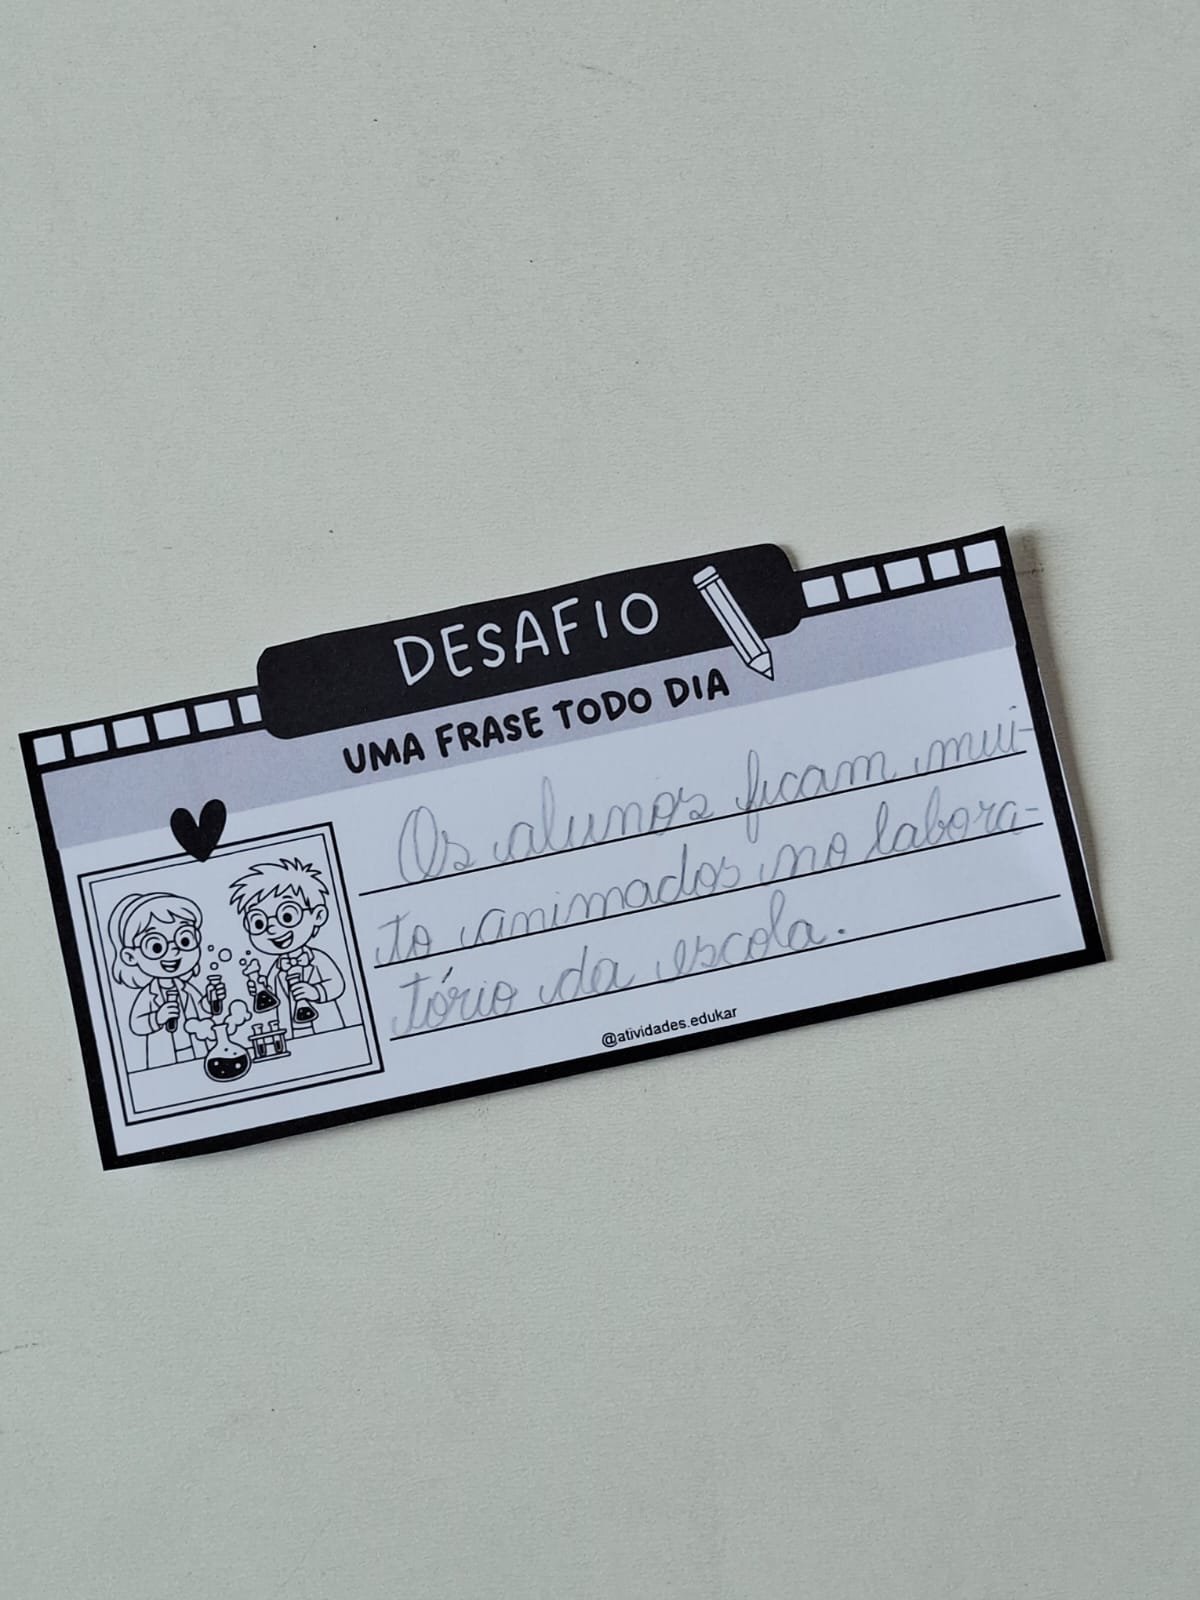 DESAFIO
UMA FRASE TODO DIA
Os alunos ficam mui-
to animados no labora-
tório da escola.
@atividades.edukar